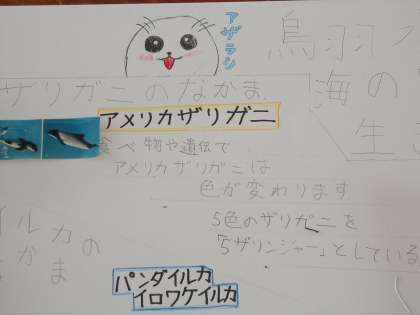 アザラシ
鳥羽
海の
生
ザリガニのなかま
アメリカザリガニ
食べ物や遺伝で
アメリカザリガニは
色が変わります
5色のザリガニを
「5ザリンジャー」としている
イルカの
なかま
パンダイルカ
イロワケイルカ